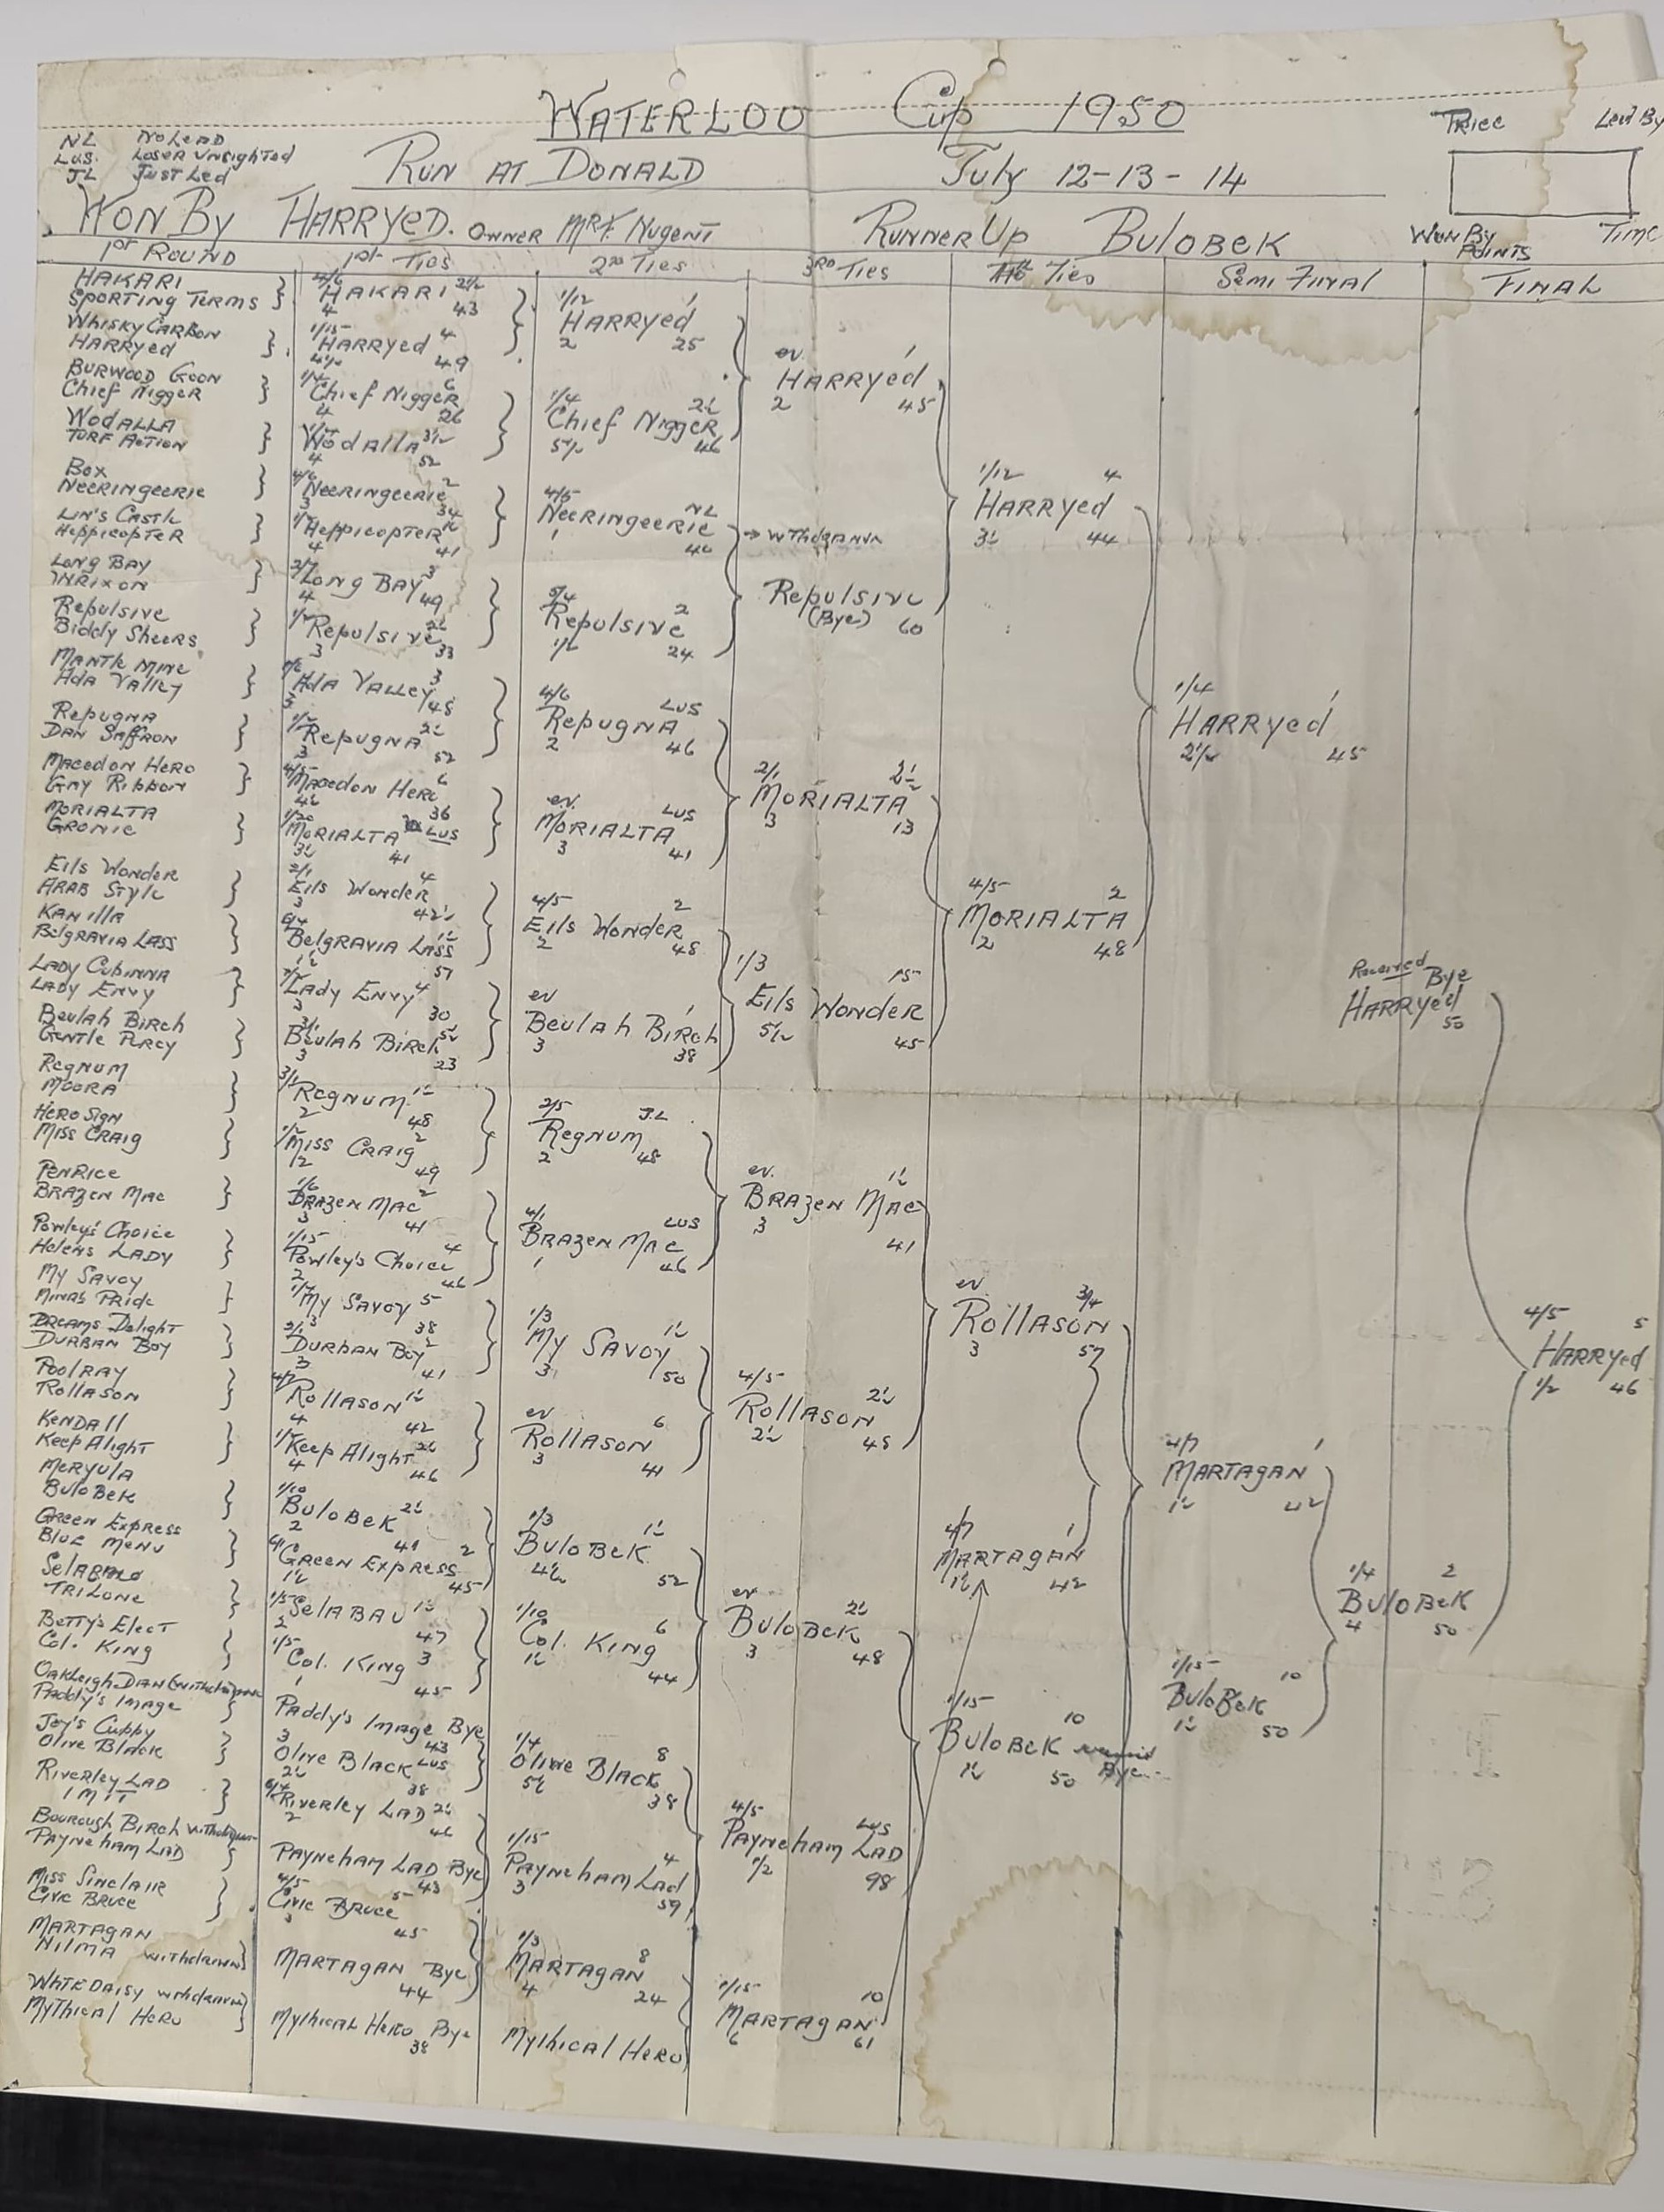 WATERLOO Cup 1950
NL No Lead
LUS. Loser Unsighted
JL Just Led
RUN AT DONALD July 12-13-14
Price Led By
Won By Points Time
WON BY HARRYED. OWNER Mr F. Nugent RUNNER UP BULOBEK
1st ROUND
HAKARI
SPORTING TERMS
WHISKY CARBON
HARRYed
BURWOOD GOON
Chief Nigger
WODALLA
TURF ACTION
Box
NEERINGEERIE
LIN'S CASTLE
HEPPICOPTER
LONG BAY
INRIXON
Repulsive
Biddy Sheers
MANTLE MINE
Ada Valley
Repugna
DAN Saffron
MACEDON HERO
GAY RIBBON
MORIALTA
GRONIE
Eils Wonder
ARAB Style
KANILLA
BelgRAVIA LASS
LADY CUBINNA
LADY ENVY
Beulah Birch
Gentle Percy
Regnum
MOORA
HERO SIGN
MISS CRAIG
PENRICE
BRAZEN MAC
Powley's Choice
Helens LADY
MY SAVOY
MINAS PRIDE
DREAMS Delight
DURBAN BOY
POOLRAY
ROLLASON
KENDALL
Keep Alight
MERYULA
BuloBek
GREEN EXPRESS
BLUE MENU
SelABAU
TRILONE
BeTTy's Elect
Col. KING
OAKLeigh DIAN (withdrawn
PADDY'S IMAGE
Joy's Cuppy
Olive BLACK
RIVERLEY LAD
IMIT
Bourough Birch withdrawn
PAYNEHAM LAD
MISS SINCLAIR
CIVIC BRUCE
MARTAGAN
NILMA withdrawn
WHITE DAISY withdrawn
MYTHICAL HERO
1st Ties
4/6 2½
HAKARI
4 43
1/15 4
HARRYed
4½ 49
6
Chief Nigger
4 26
3½
Wodalla
4 52
2
NEERINGEERIE
3 34
HEPPICOPTER
4 41
3
LONG BAY
4 49
Repulsive
3 33
3
Ada VALLEY
3 48
Repugna
3 52
4/5 6
Macedon Hero
36
1/20
MORIALTA LUS
41
2/1 4
Eils Wonder
3 42½
BelgRAVIA LASS
57
4
Lady Envy
3 30
Beulah Birch
3 23
3/1
Regnum
2 48
2
Miss CRAIG
49
1/6 2
BRAZEN MAC
3 41
1/15 4
Powley's Choice
2 46
5
My SAVOY
38
2
DURBAN Boy
3 41
4/7
ROLLASON
4 42
Keep Alight
4 46
1/10
BULOBEK
2 41
2
GREEN EXPRESS
45
1/5
SelABAU
2 47
1/5
Col. King 3
1 45
Paddy's Image Bye
3 43
Olive Black LUS
38
RIVERLEY LAD
2 46
PAYNEHAM LAD Bye
43
4/5 5
Civic Bruce
3 45
MARTAGAN Bye
44
Mythical Hero Bye
38
2nd Ties
1/12 1
HARRYed
2 25
1/4
Chief Nigger
46
4/5 NL
NEERINGEERIE
1 40
5/4 2
Repulsive
24
4/6 LUS
Repugna
2 46
ev. LUS
MORIALTA
3 41
4/5 2
Eils Wonder
2 48
ev 1
Beulah Birch
3 38
2/5 J.L
Regnum
2 48
4/1 LUS
BRAZEN MAC
1 46
1/3
My SAVOY
3 50
ev 6
ROLLASON
3 41
1/3
BULOBEK
52
1/10 6
Col. King
44
1/4 8
Olive Black
38
1/15 4
Payneham Lad
3 59
1/3 8
MARTAGAN
4 24
Mythical Hero
3RD Ties
ev. 1
HARRYed
2 45
→ withdrawn
Repulsive
(Bye) 60
2/1
MORIALTA
3 13
1/3 15
Eils Wonder
45
ev.
BRAZEN MAC
3 41
4/5
ROLLASON
48
ev
BULOBEK
3 48
4/5 LUS
PAYNEHAM LAD
1/2 98
1/15 10
MARTAGAN
6 61
4th Ties
1/12 4
HARRYed
44
4/5 2
MORIALTA
2 48
ev 3/4
ROLLASON
3 57
4/7 1
MARTAGAN
42
1/15 10
BULOBEK
50 Bye
Semi Final
1/4 1
HARRYed
2½ 45
4/7 1
MARTAGAN
42
1/15 10
BULOBEK
50
FINAL
Received Bye
HARRYed
50
1/4 2
BULOBEK
4 50
4/5 5
HARRYed
1/2 46